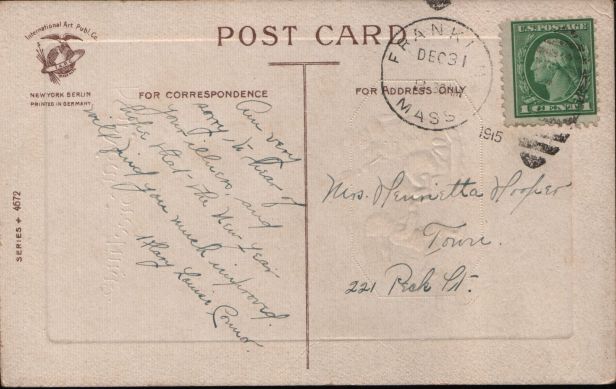 International Art Publ. Co.
NEW YORK BERLIN
PRINTED IN GERMANY
POST CARD
FOR CORRESPONDENCE
FOR ADDRESS ONLY
SERIES + 4672
FRANKLIN
DEC 31
MASS
1915
U.S. POSTAGE
1 CENT 1
Am very
sorry to hear of
your illness and
hope that the New Year
will find you much improved.
Mary Louise Connor.
Mrs. Henrietta Hooper
Town.
221 Peck St.